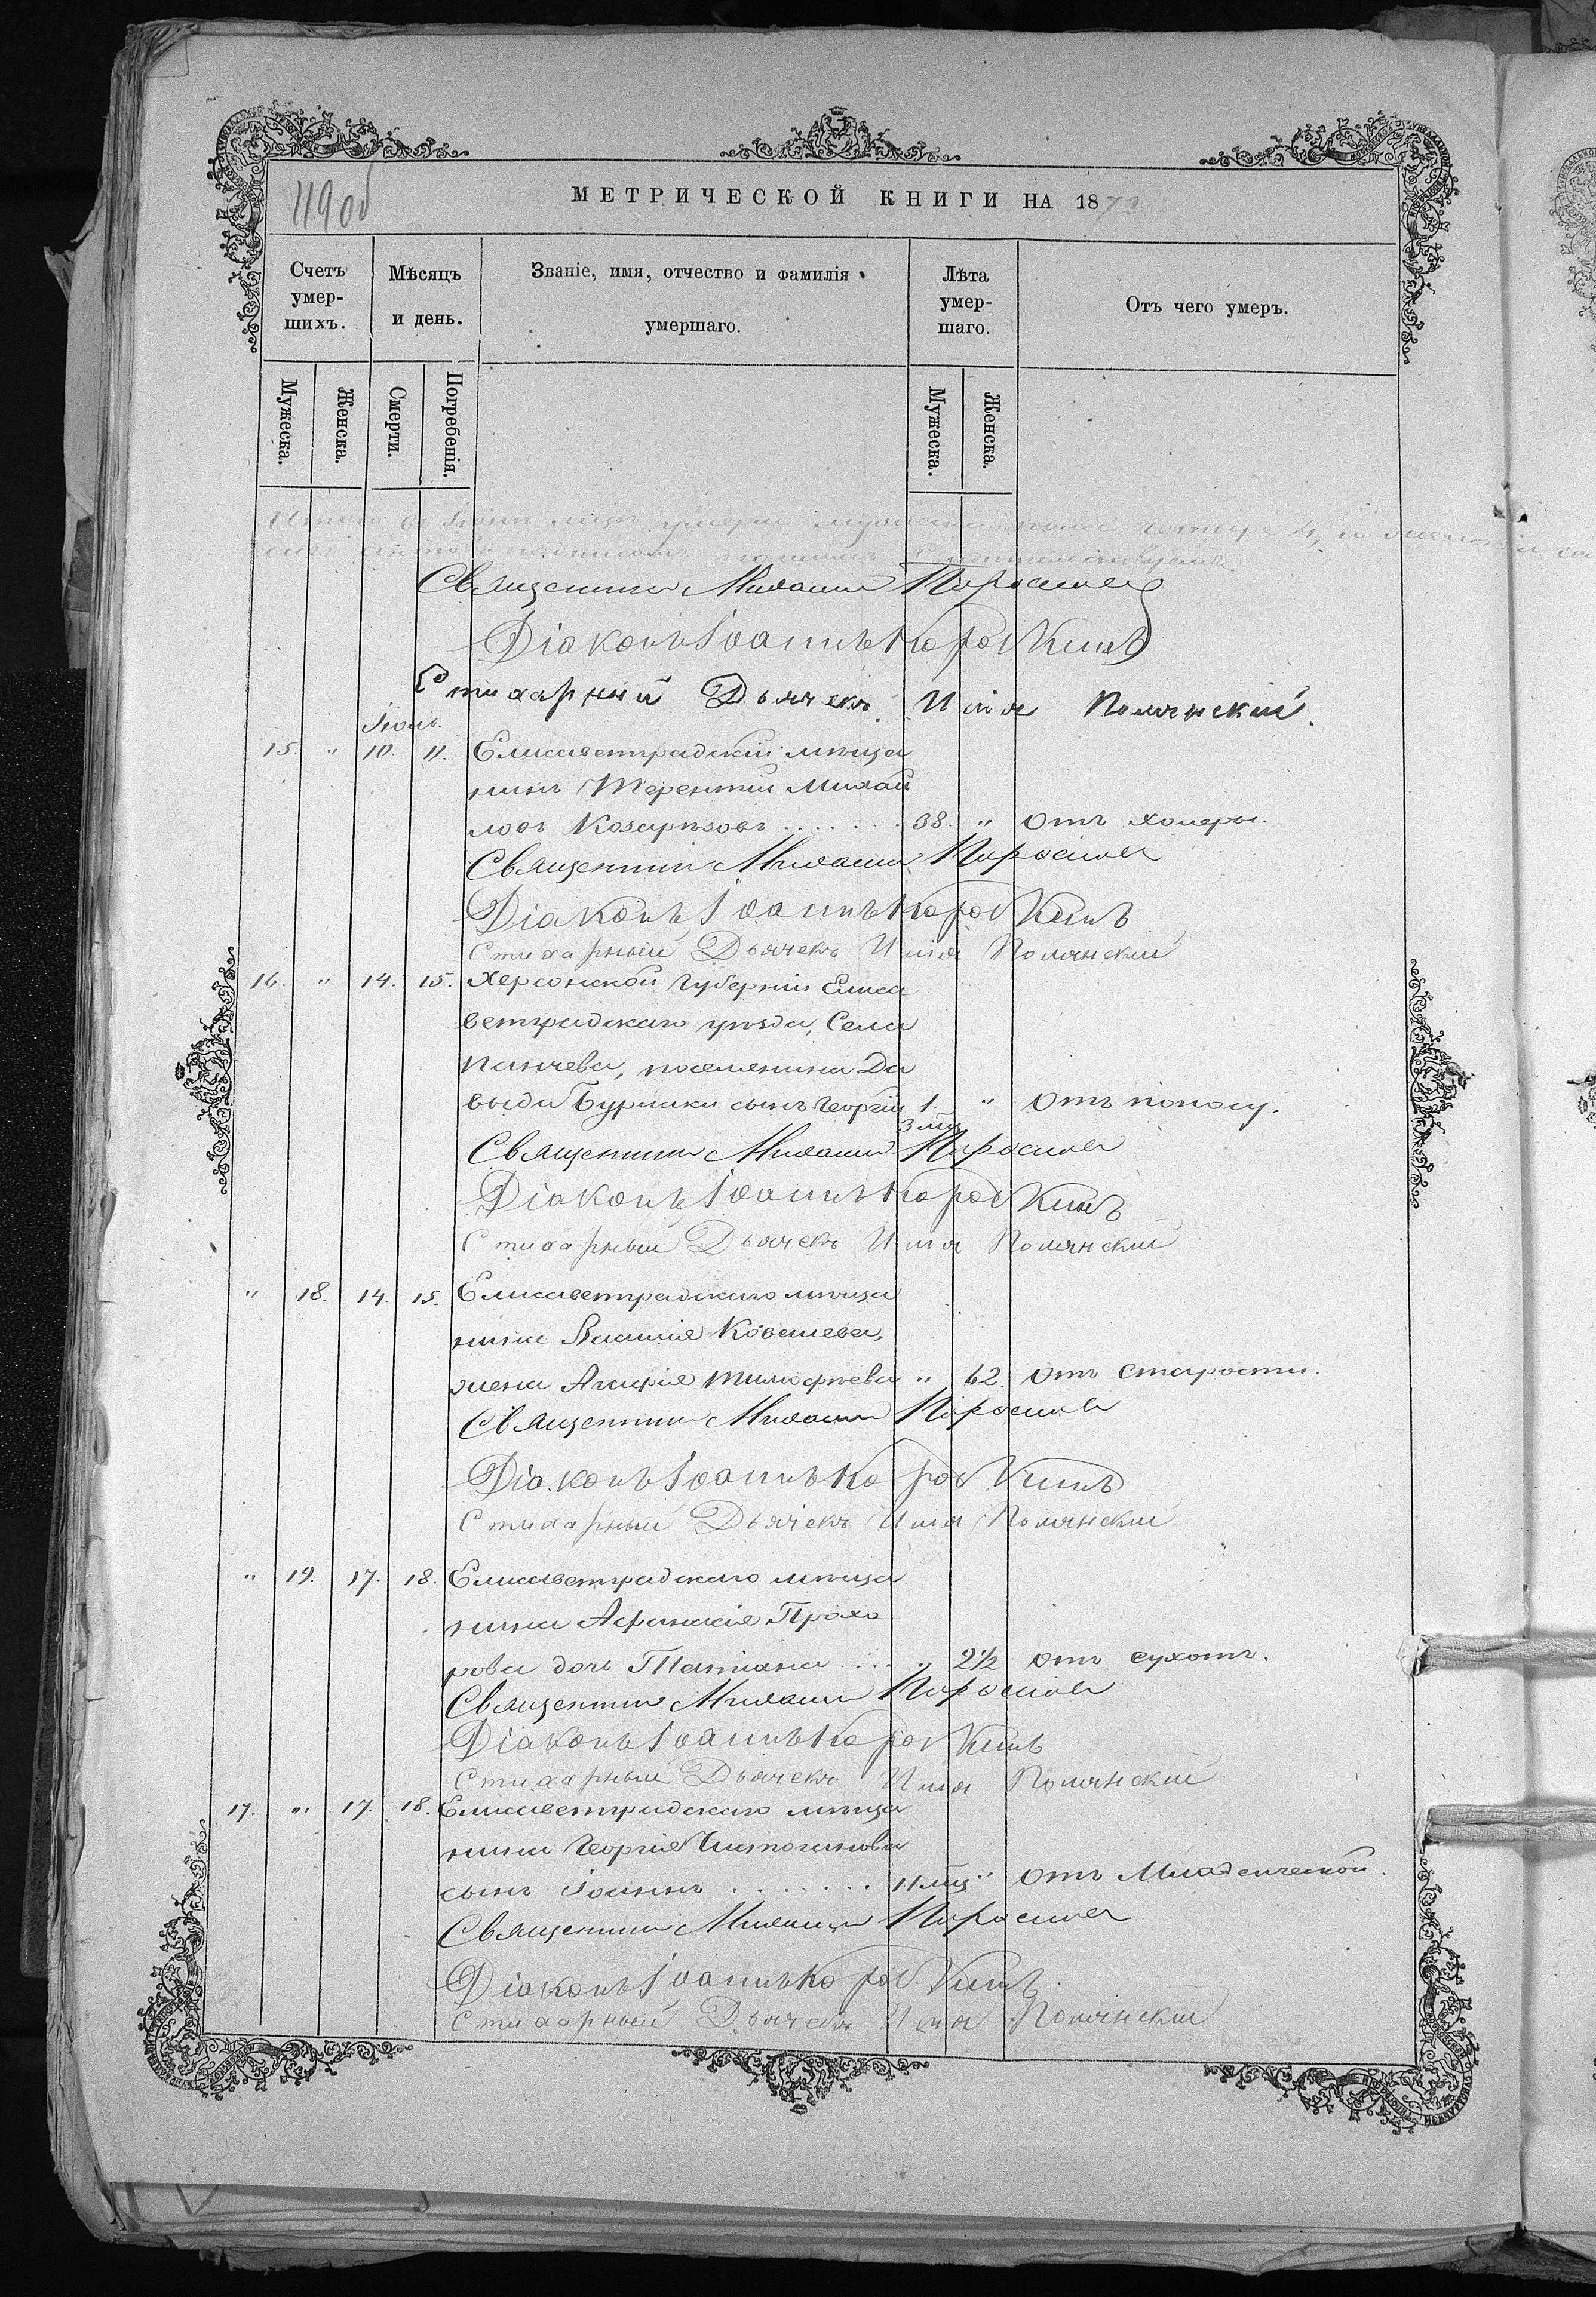 119 об
МЕТРИЧЕСКОЙ КНИГИ НА 1872
Счетъ умер-шихъ.
Мѣсяцъ и день.
Званіе, имя, отчество и фамилія умершаго.
Лѣта умер-шаго.
Отъ чего умеръ.
Мужеска.
Женска.
Смерти.
Погребенія.
Мужеска.
Женска.
Итого въ Іюнѣ умерло мужеска пола четыре 4, и женска
Священникъ Михаилъ
Діаконъ Іоаннъ
Стихарный Дьячекъ Илья Полянскій.
Іюль.
15. " 10. 11. Елисаветградскій мѣща
нинъ Терентій Михай
ловъ Козырѣзовъ ....... 38. " Отъ холеры.
Священникъ Михаилъ
Діаконъ Іоаннъ
Стихарный Дьячекъ Илья Полянскій
16. " 14. 15. Херсонской Губерніи Елиса
ветградскаго уѣзда, Села
Панчева, поселянина Да
выда Бурлаки сынъ Георгій 1. " Отъ поносу.
3 мц
Священникъ Михаилъ
Діаконъ Іоаннъ
Стихарный Дьячекъ Илья Полянскій
" 18. 14. 15. Елисаветградскаго мѣща
нина Ковалева,
жена Агафія Тимофѣева " 62. Отъ старости.
Священникъ Михаилъ
Діаконъ Іоаннъ
Стихарный Дьячекъ Илья Полянскій
" 19. 17. 18. Елисаветградскаго мѣща
нина Афанасія Прохо
рова дочь Татіана .... " 2½ Отъ сухотъ.
Священникъ Михаилъ
Діаконъ Іоаннъ
Стихарный Дьячекъ Илья Полянскій
17. " 17. 18. Елисаветградскаго мѣща
нина Георгія Чистоганова
сынъ Іоаннъ ....... 11 мц " Отъ Младенческой.
Священникъ Михаилъ
Діаконъ Іоаннъ
Стихарный Дьячекъ Илья Полянскій